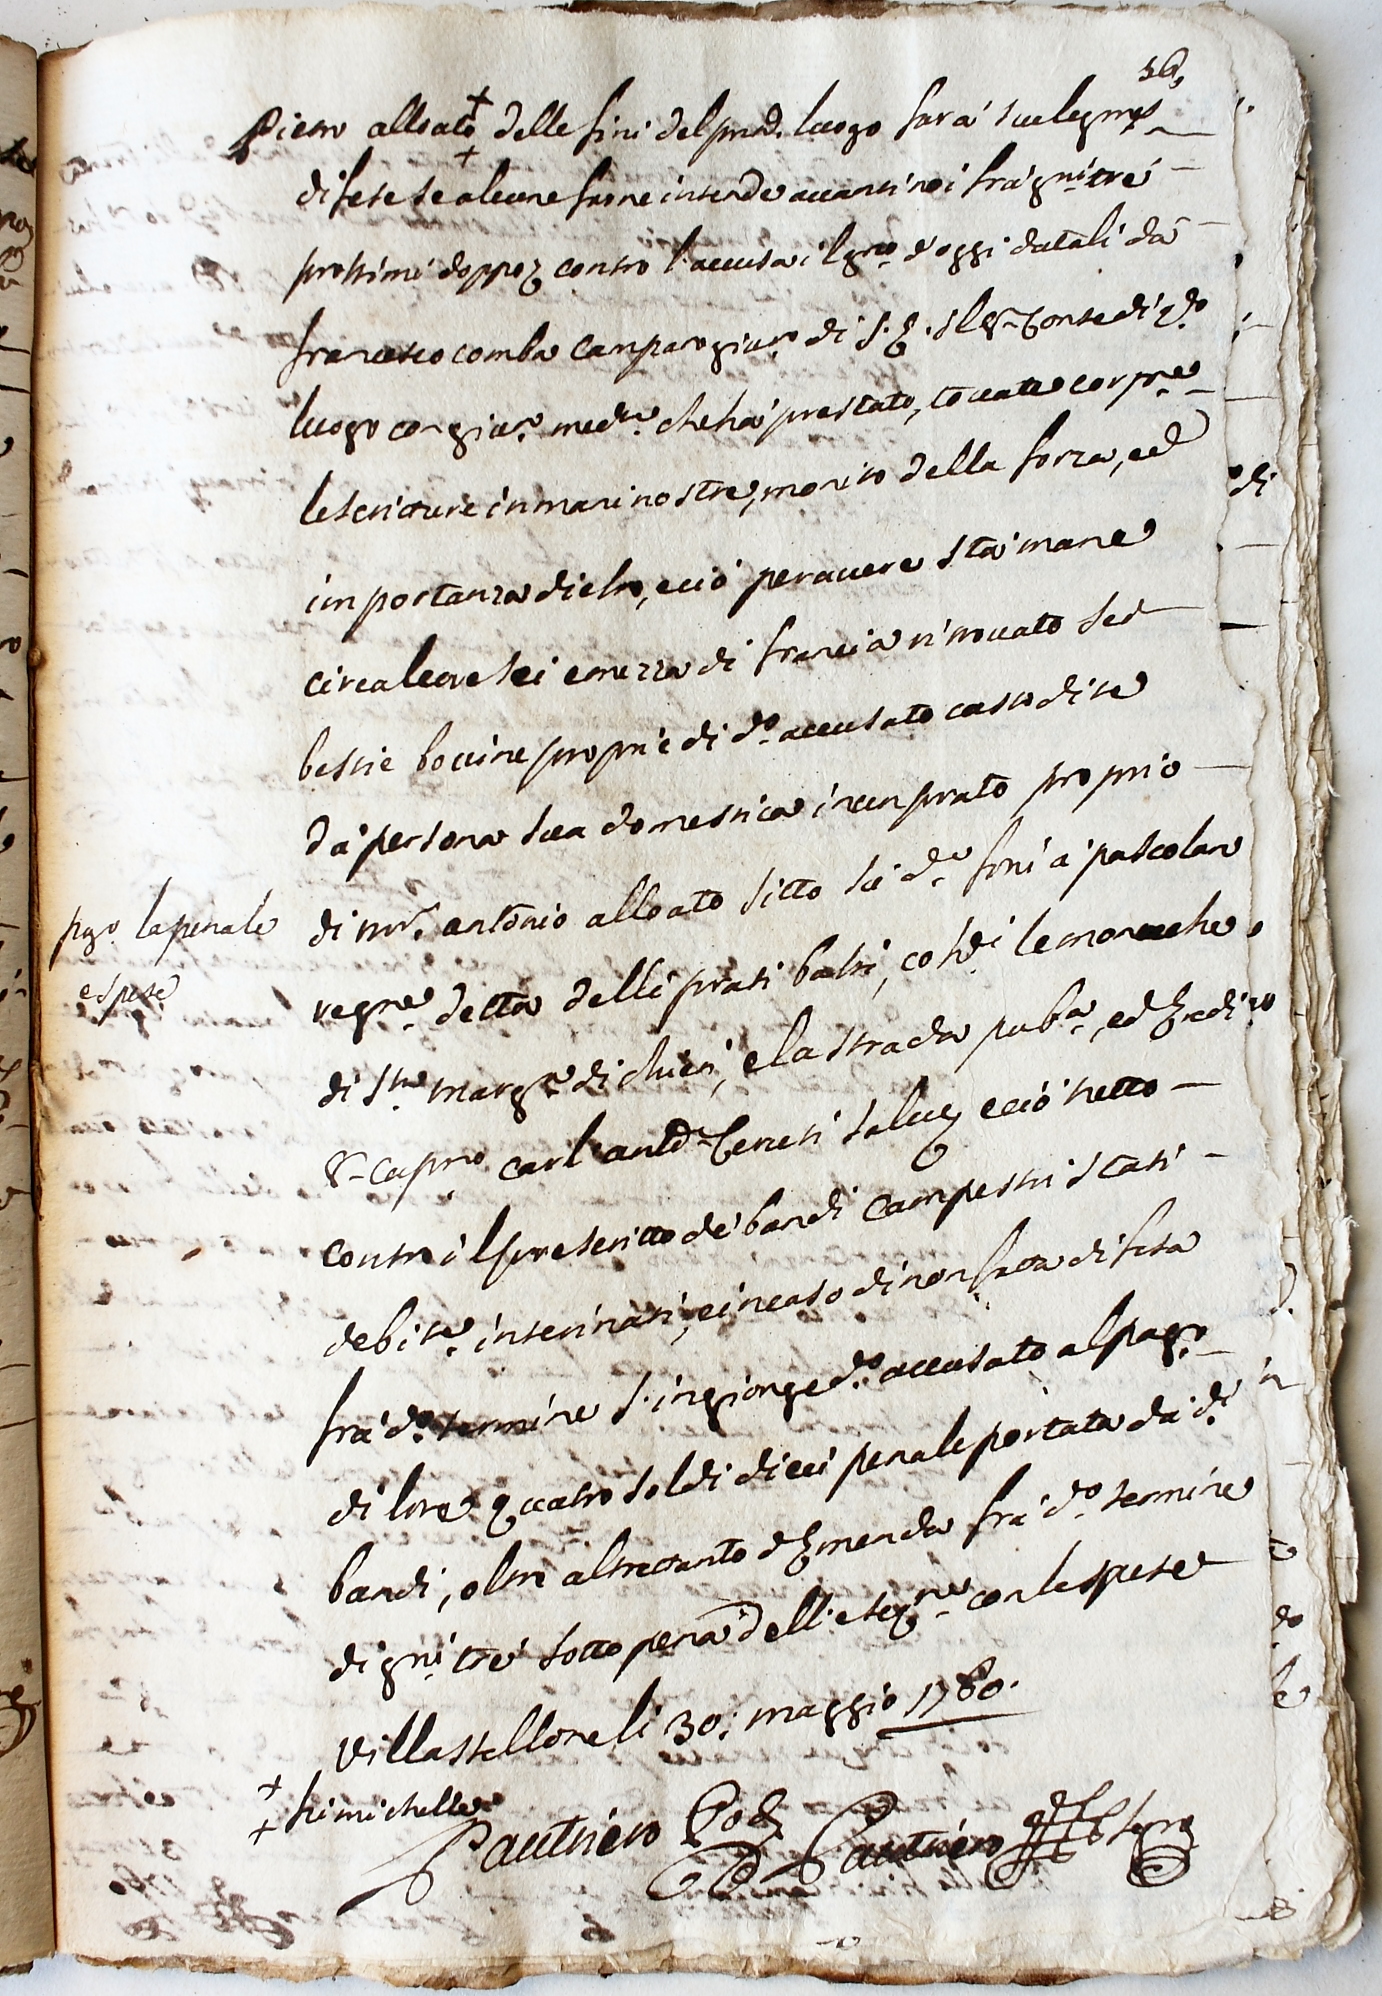 36,
Pietro alloato delle fini del pred. luogo farà sue legme
difese se alcune farne intende avanti noi frà gni trè
prossimi doppo contro l'accusa il gno d'oggi datali dà
francesco comba camparo giur.o di S. E. il Sigr Conte di q.do
luogo con giur.o med.te che hà prestato, toccate corp.te
le scritture in mani nostre, monito della forza, ed
importanza di esso, e ciò per avere stà mane
circa le ore sei e mezza di francia ritrovato sei
bestie bovine proprie di d.o accusato custodite
dà persona sua domestica in un prato proprio
di mr. antonio alloato sitto sù d.e fini à pascolare
regne detta delli prati bassi, coh.di le monache
di Sta marg.ta di chieri, e la strada pub.a, ed
Sr cap.no carl'ant.o Ceresi salvi e ciò tutto
contro il prescritto de bandi campestri stati
debit.e interinati, e in caso di non fatta difesa
frà d.o termine s'ingionge d.o accusato al pag.o
di lire quattro soldi dieci penale portata dà d.i
bandi, oltre altretanto d'Emenda frà d.o termine
di gni trè sotto pena dell'esec.ne con le spese
Villastellone li 30: maggio 1780.
pag.o la penale
e spese
+ fu michelle
Pautriero Pod.
Pautriero Segro